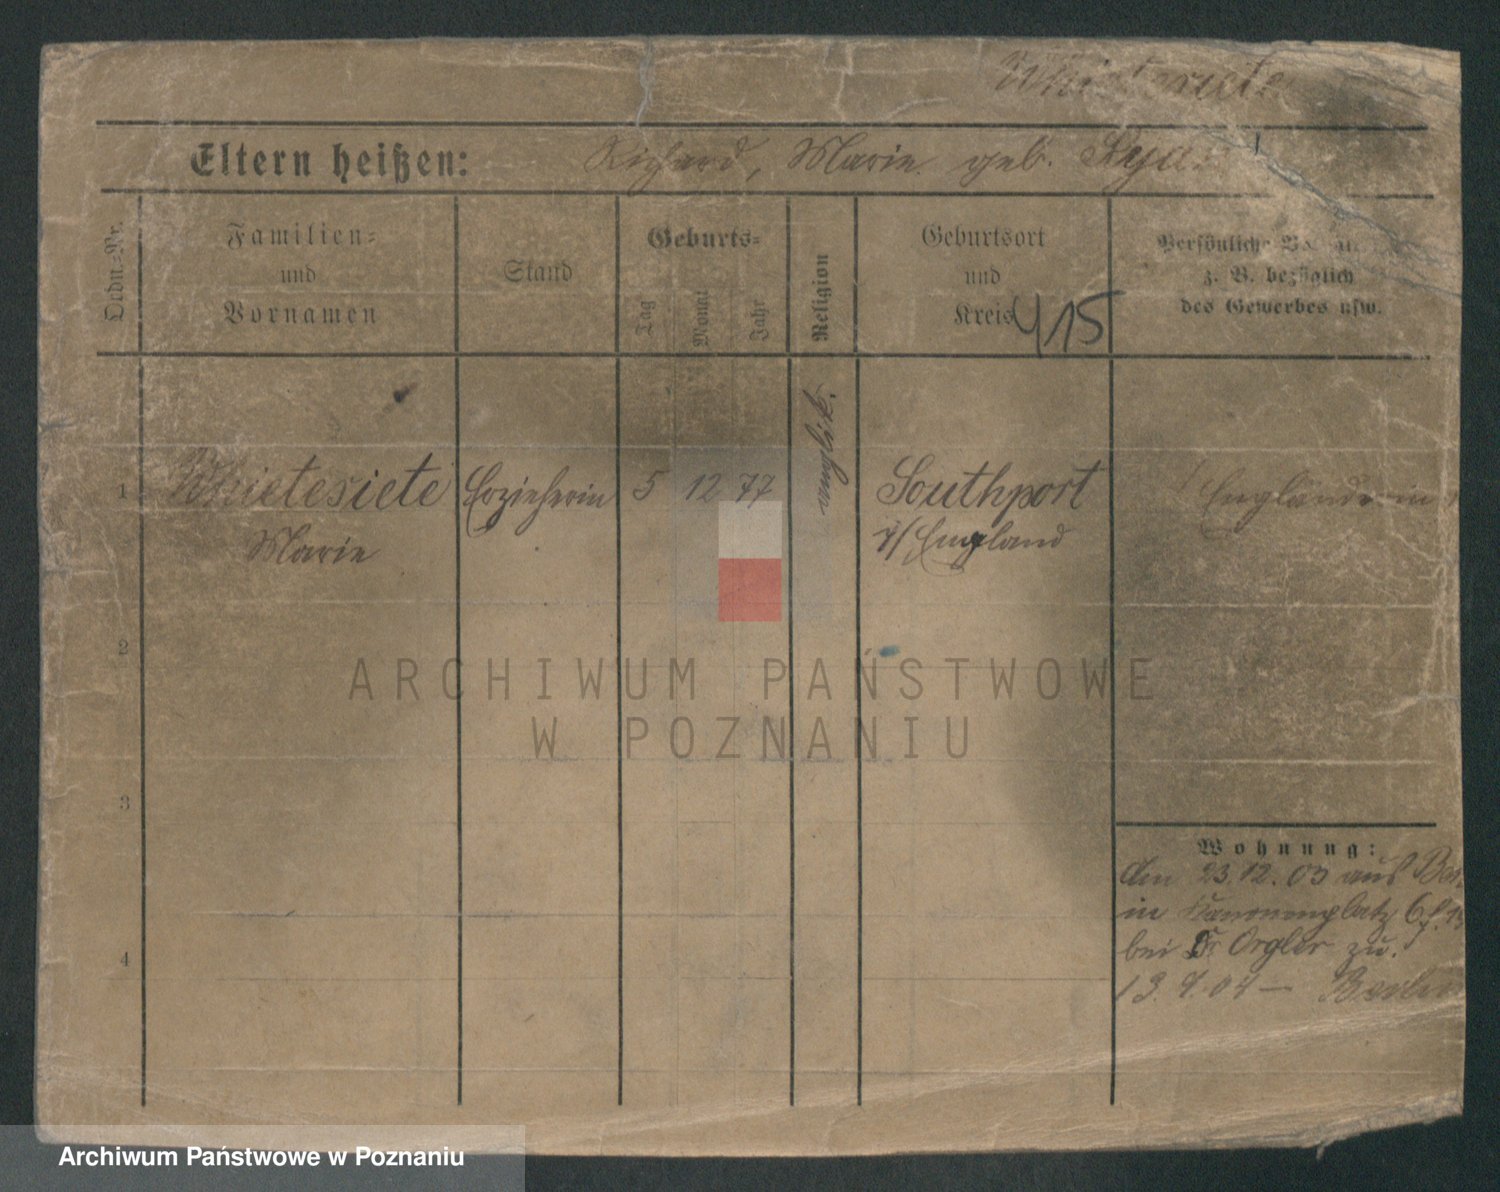 Whietesiete
Eltern heißen: Richard, Marie geb.
Ordn.-Nr.
Familien-
und
Vornamen
Stand
Geburts-
Tag
Monat
Jahr
Religion
Geburtsort
und
Kreis
415
Persönliche
z. B. bezüglich
des Gewerbes usw.
1 Whietesiete Erzieherin 5 12 77 Southport Engländerin
Marie England
2
3
4
Wohnung:
den 23.12.03 aus
in Kanonenplatz 6
bei Dr Orgler zu.
13. 9. 04 — Berlin
ARCHIWUM PAŃSTWOWE
W POZNANIU
Archiwum Państwowe w Poznaniu